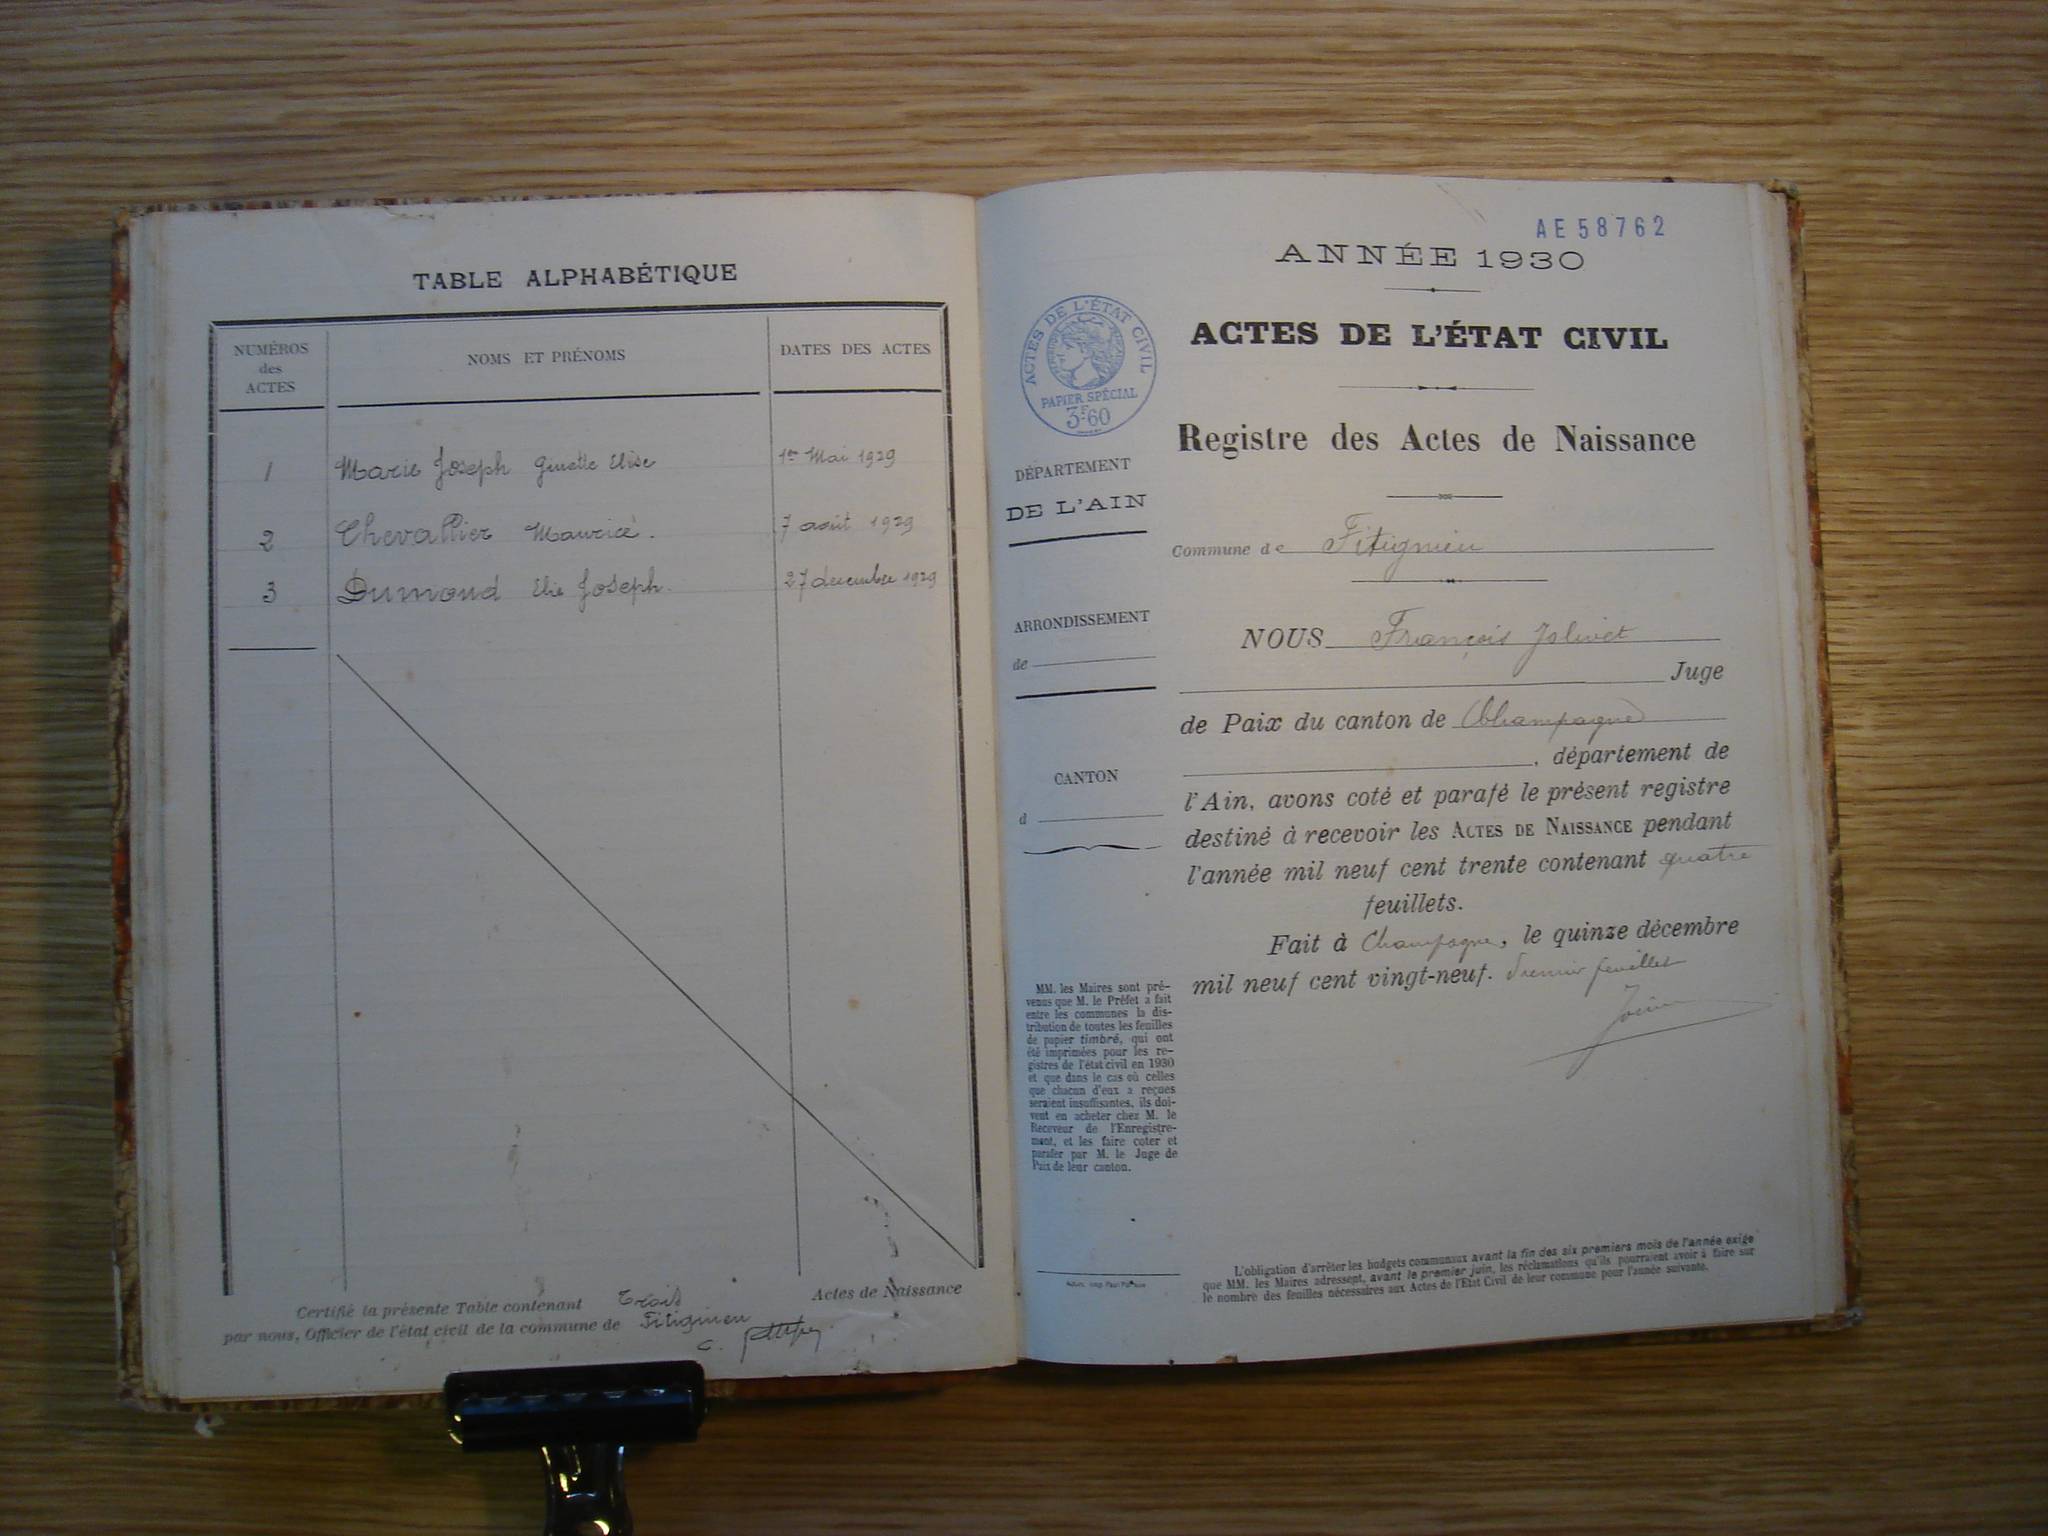 TABLE ALPHABÉTIQUE
NUMÉROS
des
ACTES
NOMS ET PRÉNOMS
DATES DES ACTES
1 Marie Joseph Ginette Elise 1er Mai 1929
2 Chevallier Maurice. 7 août 1929
3 Dumond Elie Joseph. 27 décembre 1929
Certifié la présente Table contenant Trois Actes de Naissance
par nous, Officier de l'état civil de la commune de Fitignieu
AE58762
ANNÉE 1930
ACTES DE L'ÉTAT CIVIL
Registre des Actes de Naissance
ACTES DE L'ÉTAT CIVIL
PAPIER SPÉCIAL
3F60
DÉPARTEMENT
DE L'AIN
ARRONDISSEMENT
de
CANTON
d
Commune de Fitignieu
NOUS François Jolivet
Juge
de Paix du canton de Champagne
, département de
l'Ain, avons coté et parafé le présent registre
destiné à recevoir les ACTES DE NAISSANCE pendant
l'année mil neuf cent trente contenant quatre
feuillets.
Fait à Champagne, le quinze décembre
mil neuf cent vingt-neuf. Premier feuillet
MM. les Maires sont pré-
venus que M. le Préfet a fait
entre les communes la dis-
tribution de toutes les feuilles
de papier timbré, qui ont
été imprimées pour les re-
gistres de l'état civil en 1930
et que dans le cas où celles
que chacun d'eux a reçues
seraient insuffisantes, ils doi-
vent en acheter chez M. le
Receveur de l'Enregistre-
ment, et les faire coter et
parafer par M. le Juge de
Paix de leur canton.
L'obligation d'arrêter les budgets communaux avant la fin des six premiers mois de l'année exige
que MM. les Maires adressent, avant le premier juin, les réclamations qu'ils pourraient avoir à faire sur
le nombre des feuilles nécessaires aux Actes de l'Etat Civil de leur commune pour l'année suivante.